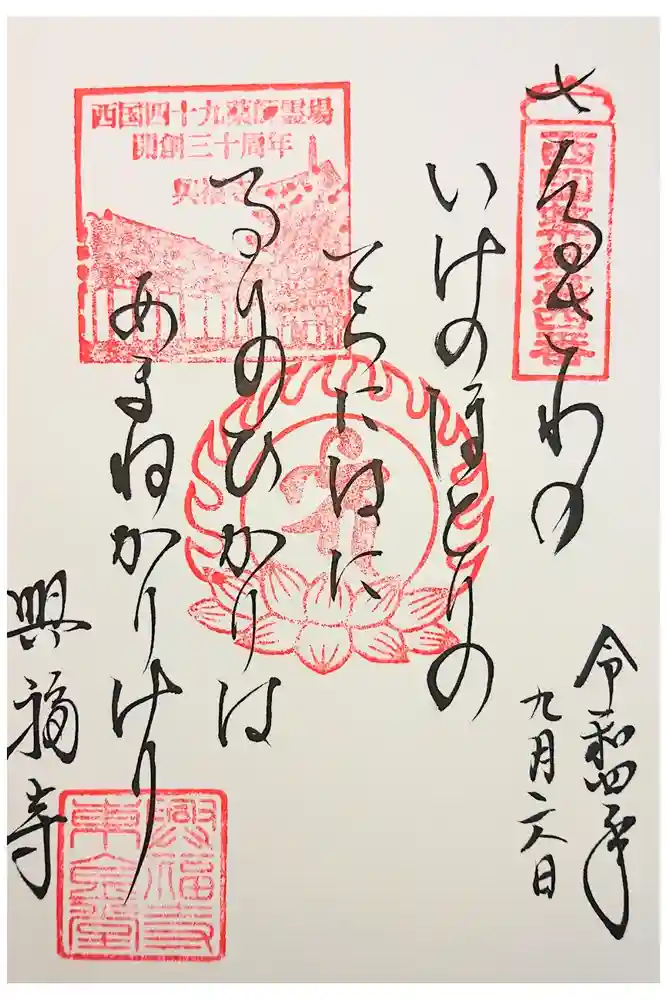 西国薬師第四番
さるさわの
いけのほとりの
にはに
るりのひかりは
あまねかりけり
西国四十九薬師霊場
開創三十周年
興福寺
令和四年
九月二八日
興福寺
興福寺
東金堂